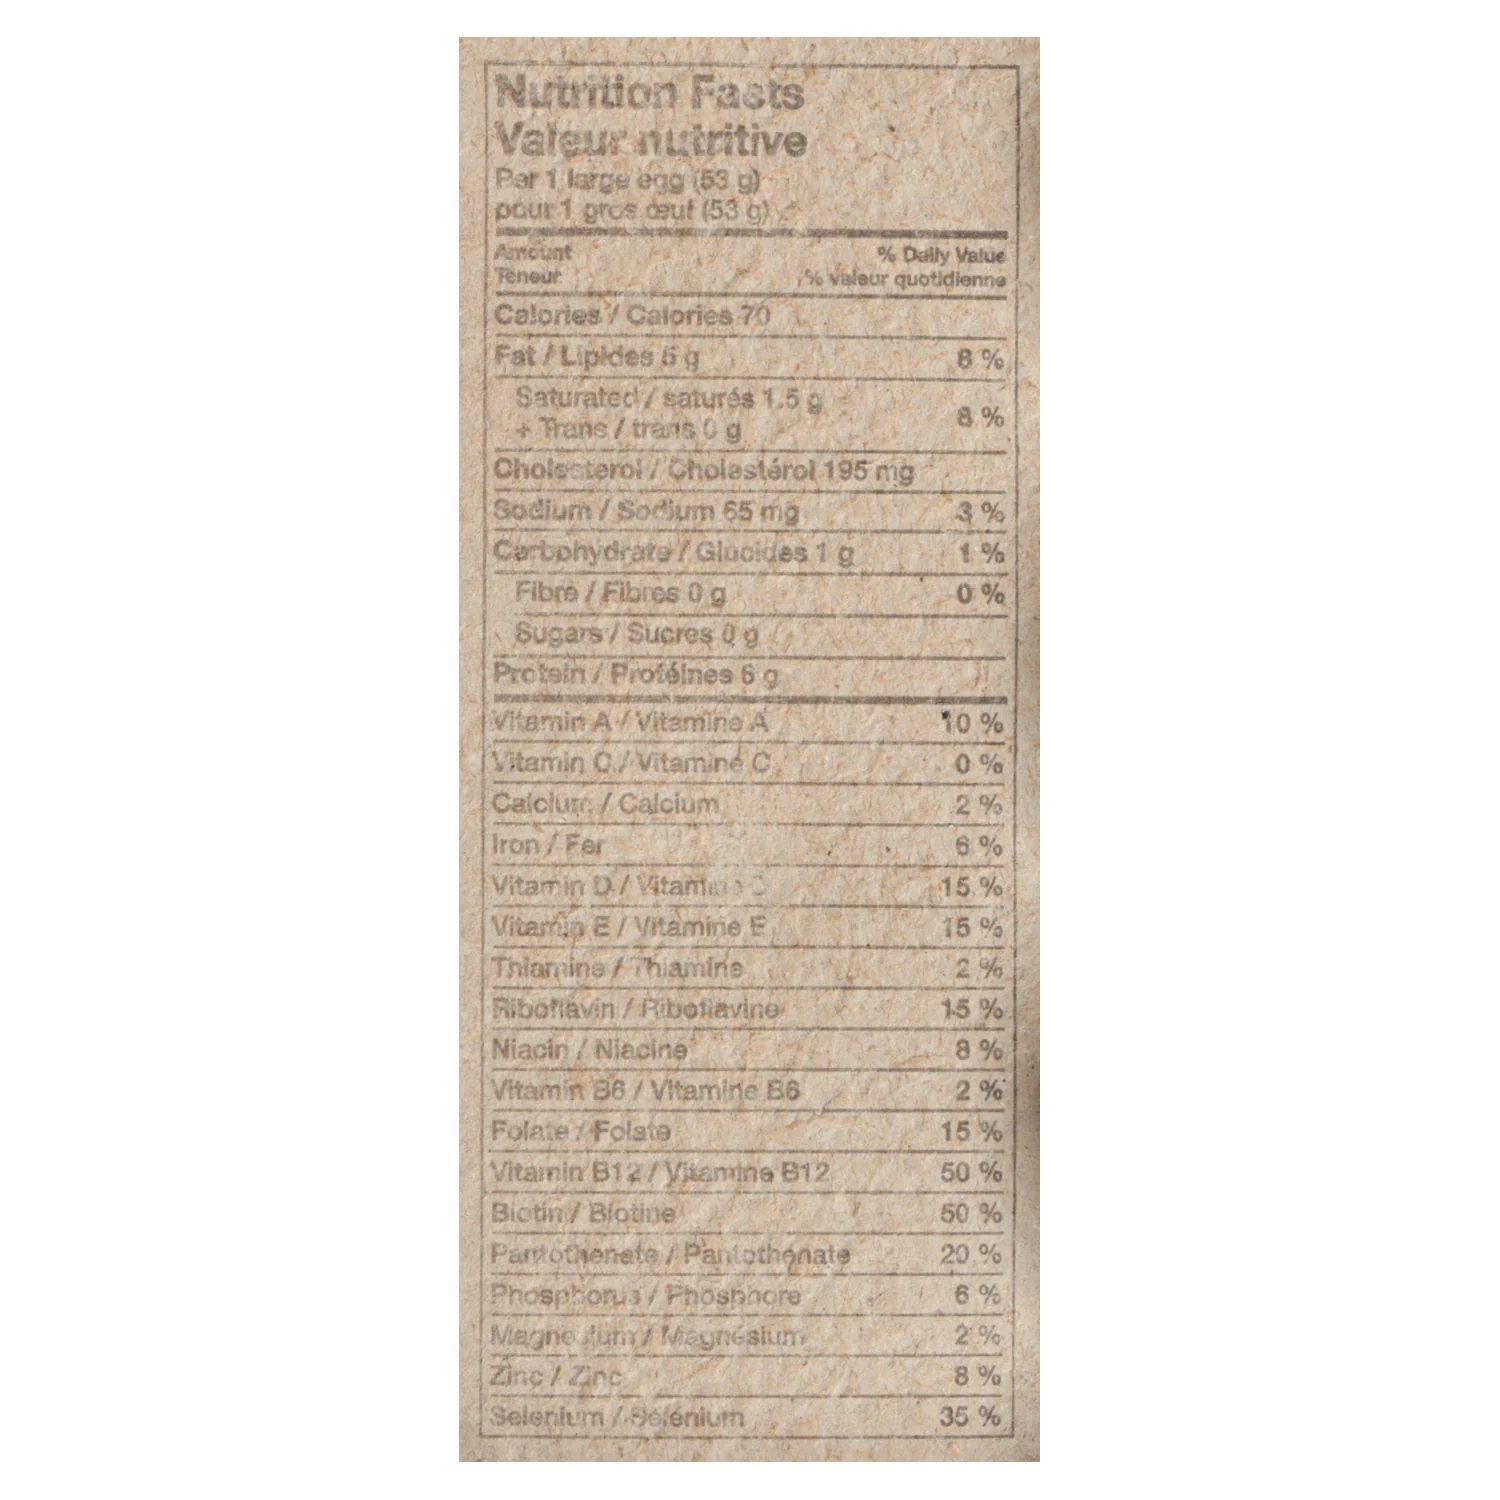 Nutrition Facts
Valeur nutritive
Per 1 large egg (53 g)
pour 1 gros œuf (53 g)
Amount % Daily Value
Teneur % valeur quotidienne
Calories / Calories 70
Fat / Lipides 5 g 8 %
Saturated / saturés 1.5 g
+ Trans / trans 0 g 8 %
Cholesterol / Cholestérol 195 mg
Sodium / Sodium 65 mg 3 %
Carbohydrate / Glucides 1 g 1 %
Fibre / Fibres 0 g 0 %
Sugars / Sucres 0 g
Protein / Protéines 6 g
Vitamin A / Vitamine A 10 %
Vitamin C / Vitamine C 0 %
Calcium / Calcium 2 %
Iron / Fer 6 %
Vitamin D / Vitamine D 15 %
Vitamin E / Vitamine E 15 %
Thiamine / Thiamine 2 %
Riboflavin / Riboflavine 15 %
Niacin / Niacine 8 %
Vitamin B6 / Vitamine B6 2 %
Folate / Folate 15 %
Vitamin B12 / Vitamine B12 50 %
Biotin / Biotine 50 %
Pantothenate / Pantothénate 20 %
Phosphorus / Phosphore 6 %
Magnesium / Magnésium 2 %
Zinc / Zinc 8 %
Selenium / Sélénium 35 %